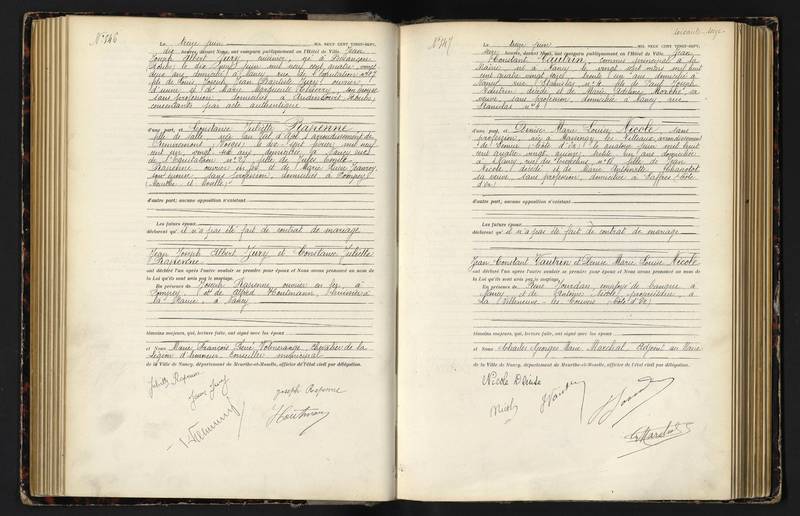 N° 146
Le treize juin MIL NEUF CENT VINGT-SEPT,
dix heures, devant Nous, ont comparu publiquement en l'Hôtel de Ville Jean
Joseph Albert Jury
domicilié à Nancy, rue de l'Equitation n° 27
fils de Louis Joseph Jean Baptiste Jury, ouvrier
d'usine et de Marie Marguerite son épouse
sans profession, domiciliés à
consentants par acte authentique
d'une part, et Constance Juliette Rapenne
fille de salle, née au Val d'Ajol, arrondissement de
Remiremont, Vosges, le dix sept février mil neuf
cent six, vingt un ans, domiciliée à Nancy rue
de l'Equitation n° 27, fille de Jules Joseph
Rapenne ouvrier en fer et de Marie
son épouse, sans profession, domiciliés à Pompey
(Meurthe et Moselle)
d'autre part; aucune opposition n'existant
Les futurs époux
déclarent qu'il n'a pas été fait de contrat de mariage
Jean Joseph Albert Jury et Constance Juliette
Rapenne
ont déclaré l'un après l'autre vouloir se prendre pour époux et Nous avons prononcé au nom de
la Loi qu'ils sont unis par le mariage.
En présence de Joseph Rapenne, ouvrier en fer à
Pompey, et de Alfred Houtmann
à Nancy
témoins majeurs, qui, lecture faite, ont signé avec les époux
et Nous Marie François René Volmerange, Chevalier de la
Légion d'honneur Conseiller municipal
de la Ville de Nancy, département de Meurthe-et-Moselle, officier de l'état civil par délégation.
Juliette Rapenne
Jean Jury
Joseph Rapenne
Houtmann
N° 147
soixante-seize
Le treize juin MIL NEUF CENT VINGT-SEPT,
heures, devant Nous, ont comparu publiquement en l'Hôtel de Ville Jean
Constant Vautrin, commis principal à la
Mairie né à Nancy le vingt sept mars mil huit
cent quatre vingt seize, trente un ans domicilié à
Nancy rue Stanislas n° 4 fils de Paul Joseph
Vautrin décédé et de Marie Adeline sa
veuve, sans profession, domiciliée à Nancy rue
Stanislas n° 4
d'une part, et Denise Marie Louise Nicole, sans
profession, née à arrondissement
de Semur (Côte d'Or) le
cent quatre vingt quinze, trente un ans domiciliée
à Nancy, fille de Jean
Nicole décédé et de Marie Antoinette Chapotot
sa veuve, sans profession, domiciliée à Saffres (Côte
d'Or)
d'autre part; aucune opposition n'existant
Les futurs époux
déclarent qu'il n'a pas été fait de contrat de mariage
Jean Constant Vautrin et Denise Marie Louise Nicole
ont déclaré l'un après l'autre vouloir se prendre pour époux et Nous avons prononcé au nom de
la Loi qu'ils sont unis par le mariage.
En présence de René Jourdan, employé de banque à
Nancy et de Nicole, propriétaire, à
La Villeneuve-les-Convers (Côte d'Or)
témoins majeurs, qui, lecture faite, ont signé avec les époux
et Nous Charles Georges Marie Marchal Adjoint au Maire
de la Ville de Nancy, département de Meurthe-et-Moselle, officier de l'état civil par délégation.
Nicole Denise
Nicole
J Vautrin
G Marchal